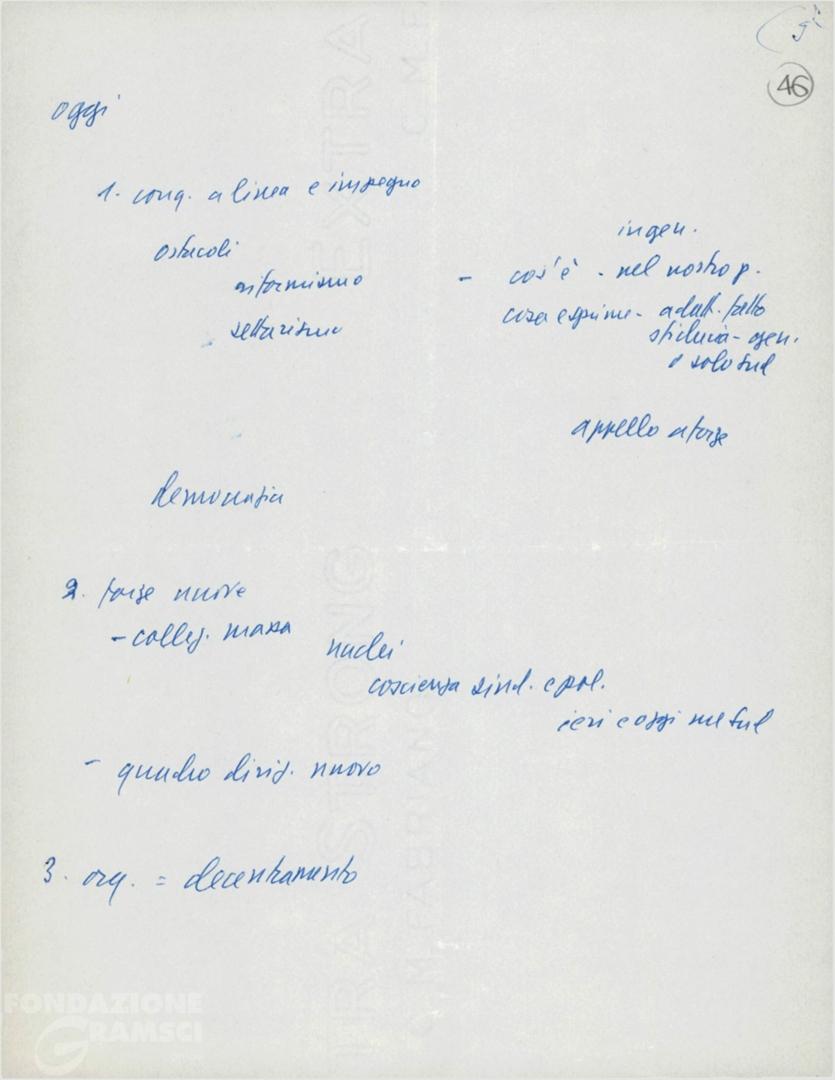 46
oggi
1. conq. a linea e impegno
ostacoli
riformismo
settarismo
ingen.
- cos'è - nel nostro p.
cosa esprime - adatt. fatto
sfiducia - gen.
o solo Sud
appello a forze
democrazia
2. forze nuove
- colleg. massa
nuclei
coscienza sind. e pol.
ieri e oggi nel Sud
- quadro dirig. nuovo
3. org. = decentramento
EXTRA
STRONG
FABRIANO
FONDAZIONE
GRAMSCI